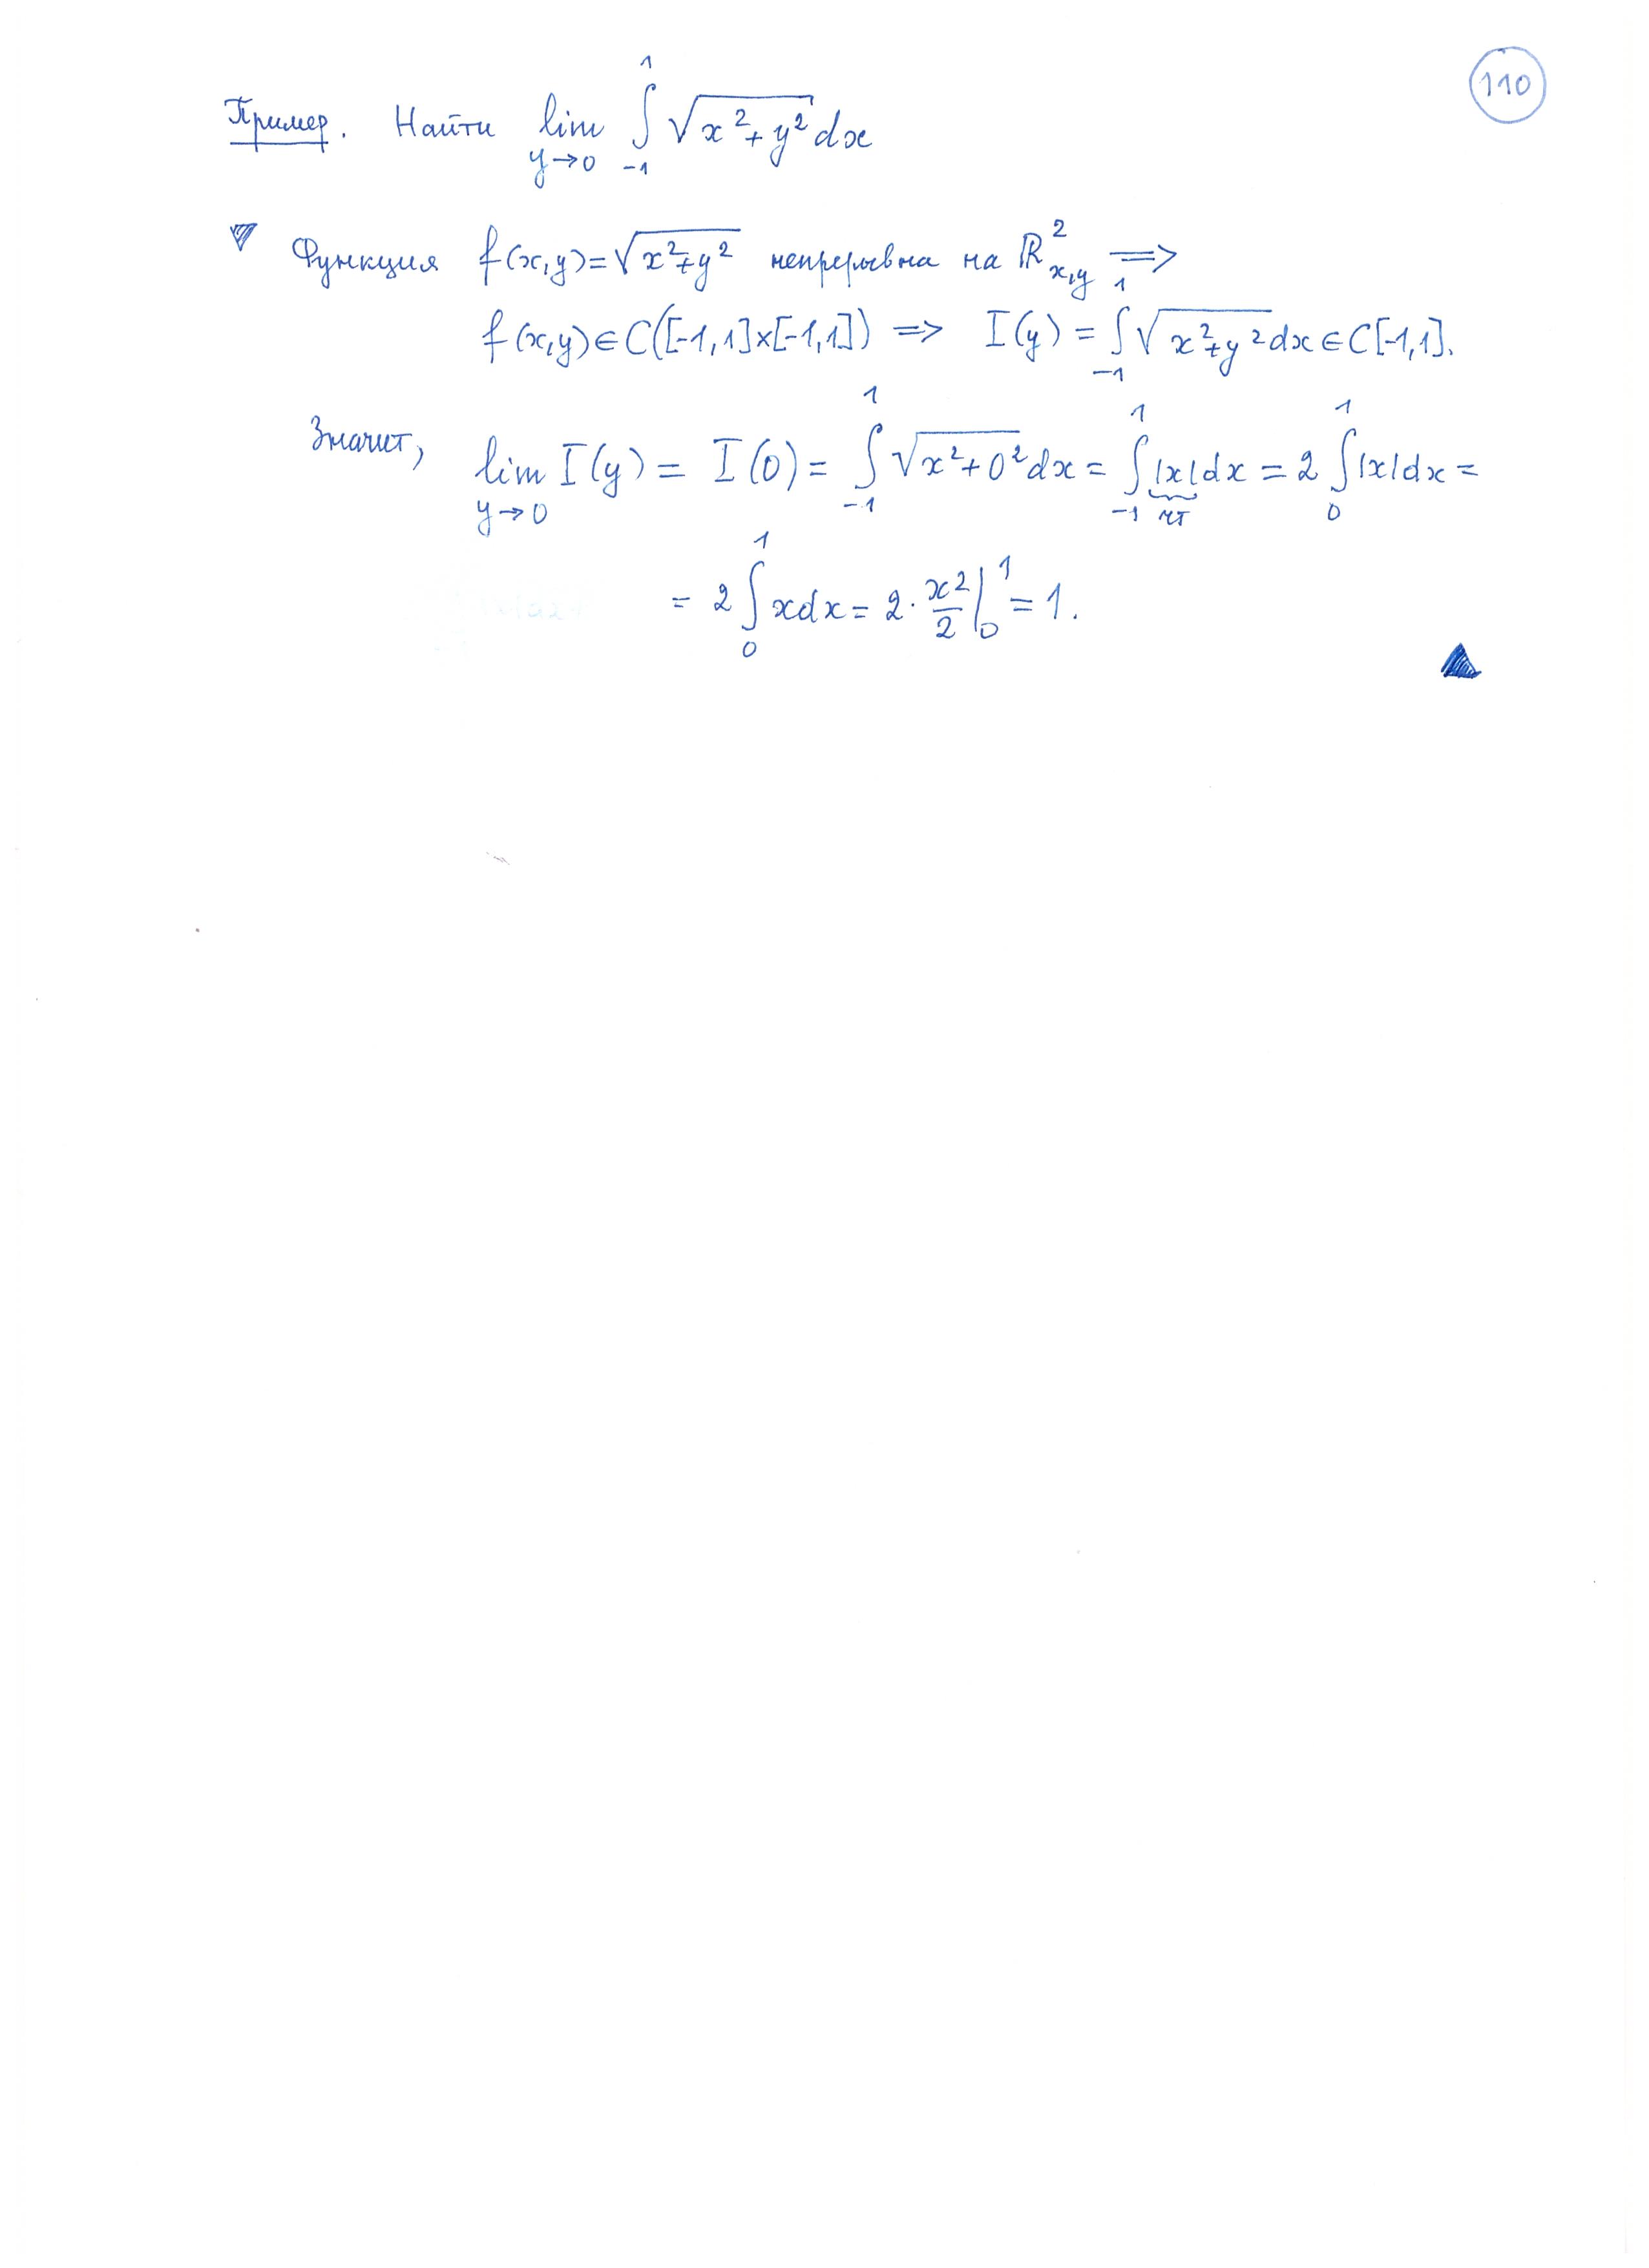 110
Пример. Найти $\lim\limits_{y \to 0} \int\limits_{-1}^{1} \sqrt{x^2+y^2} dx$
Функция $f(x,y)=\sqrt{x^2+y^2}$ непрерывна на $\mathbb{R}^2_{x,y} \Rightarrow$
$f(x,y) \in C([-1,1] \times [-1,1]) \Rightarrow I(y) = \int\limits_{-1}^{1} \sqrt{x^2+y^2} dx \in C[-1,1].$
Значит, $\lim\limits_{y \to 0} I(y) = I(0) = \int\limits_{-1}^{1} \sqrt{x^2+0^2} dx = \int\limits_{-1}^{1} \underbrace{|x|}_{чт} dx = 2 \int\limits_{0}^{1} |x| dx =$
$= 2 \int\limits_{0}^{1} x dx = 2 \cdot \frac{x^2}{2} \Big|_0^1 = 1.$